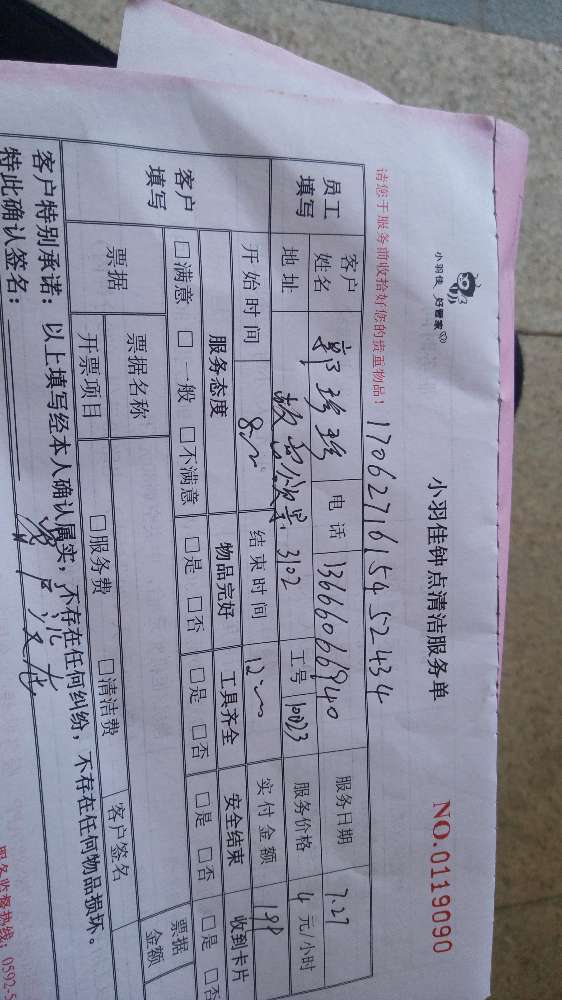 小羽佳 好管家
小羽佳钟点清洁服务单
NO.0119090
请您于服务前收拾好您的贵重物品!
1706271615452434
员工填写
客户姓名 郭珍珍 电话 13666066940 服务日期 7.27
地址 3102 工号 10023 服务价格 4 元/小时
开始时间 8:~ 结束时间 12:~ 实付金额 199
客户填写
服务态度 物品完好 工具齐全 安全结束 收到卡片
□满意 □一般 □不满意 □是 □否 □是 □否 □是 □否 □是 □否
票据 票据名称 票据金额
开票项目 □服务费 □清洁费 客户签名
客户特别承诺: 以上填写经本人确认属实, 不存在任何纠纷, 不存在任何物品损坏。
特此确认签名:
服务监督热线: 0592-5